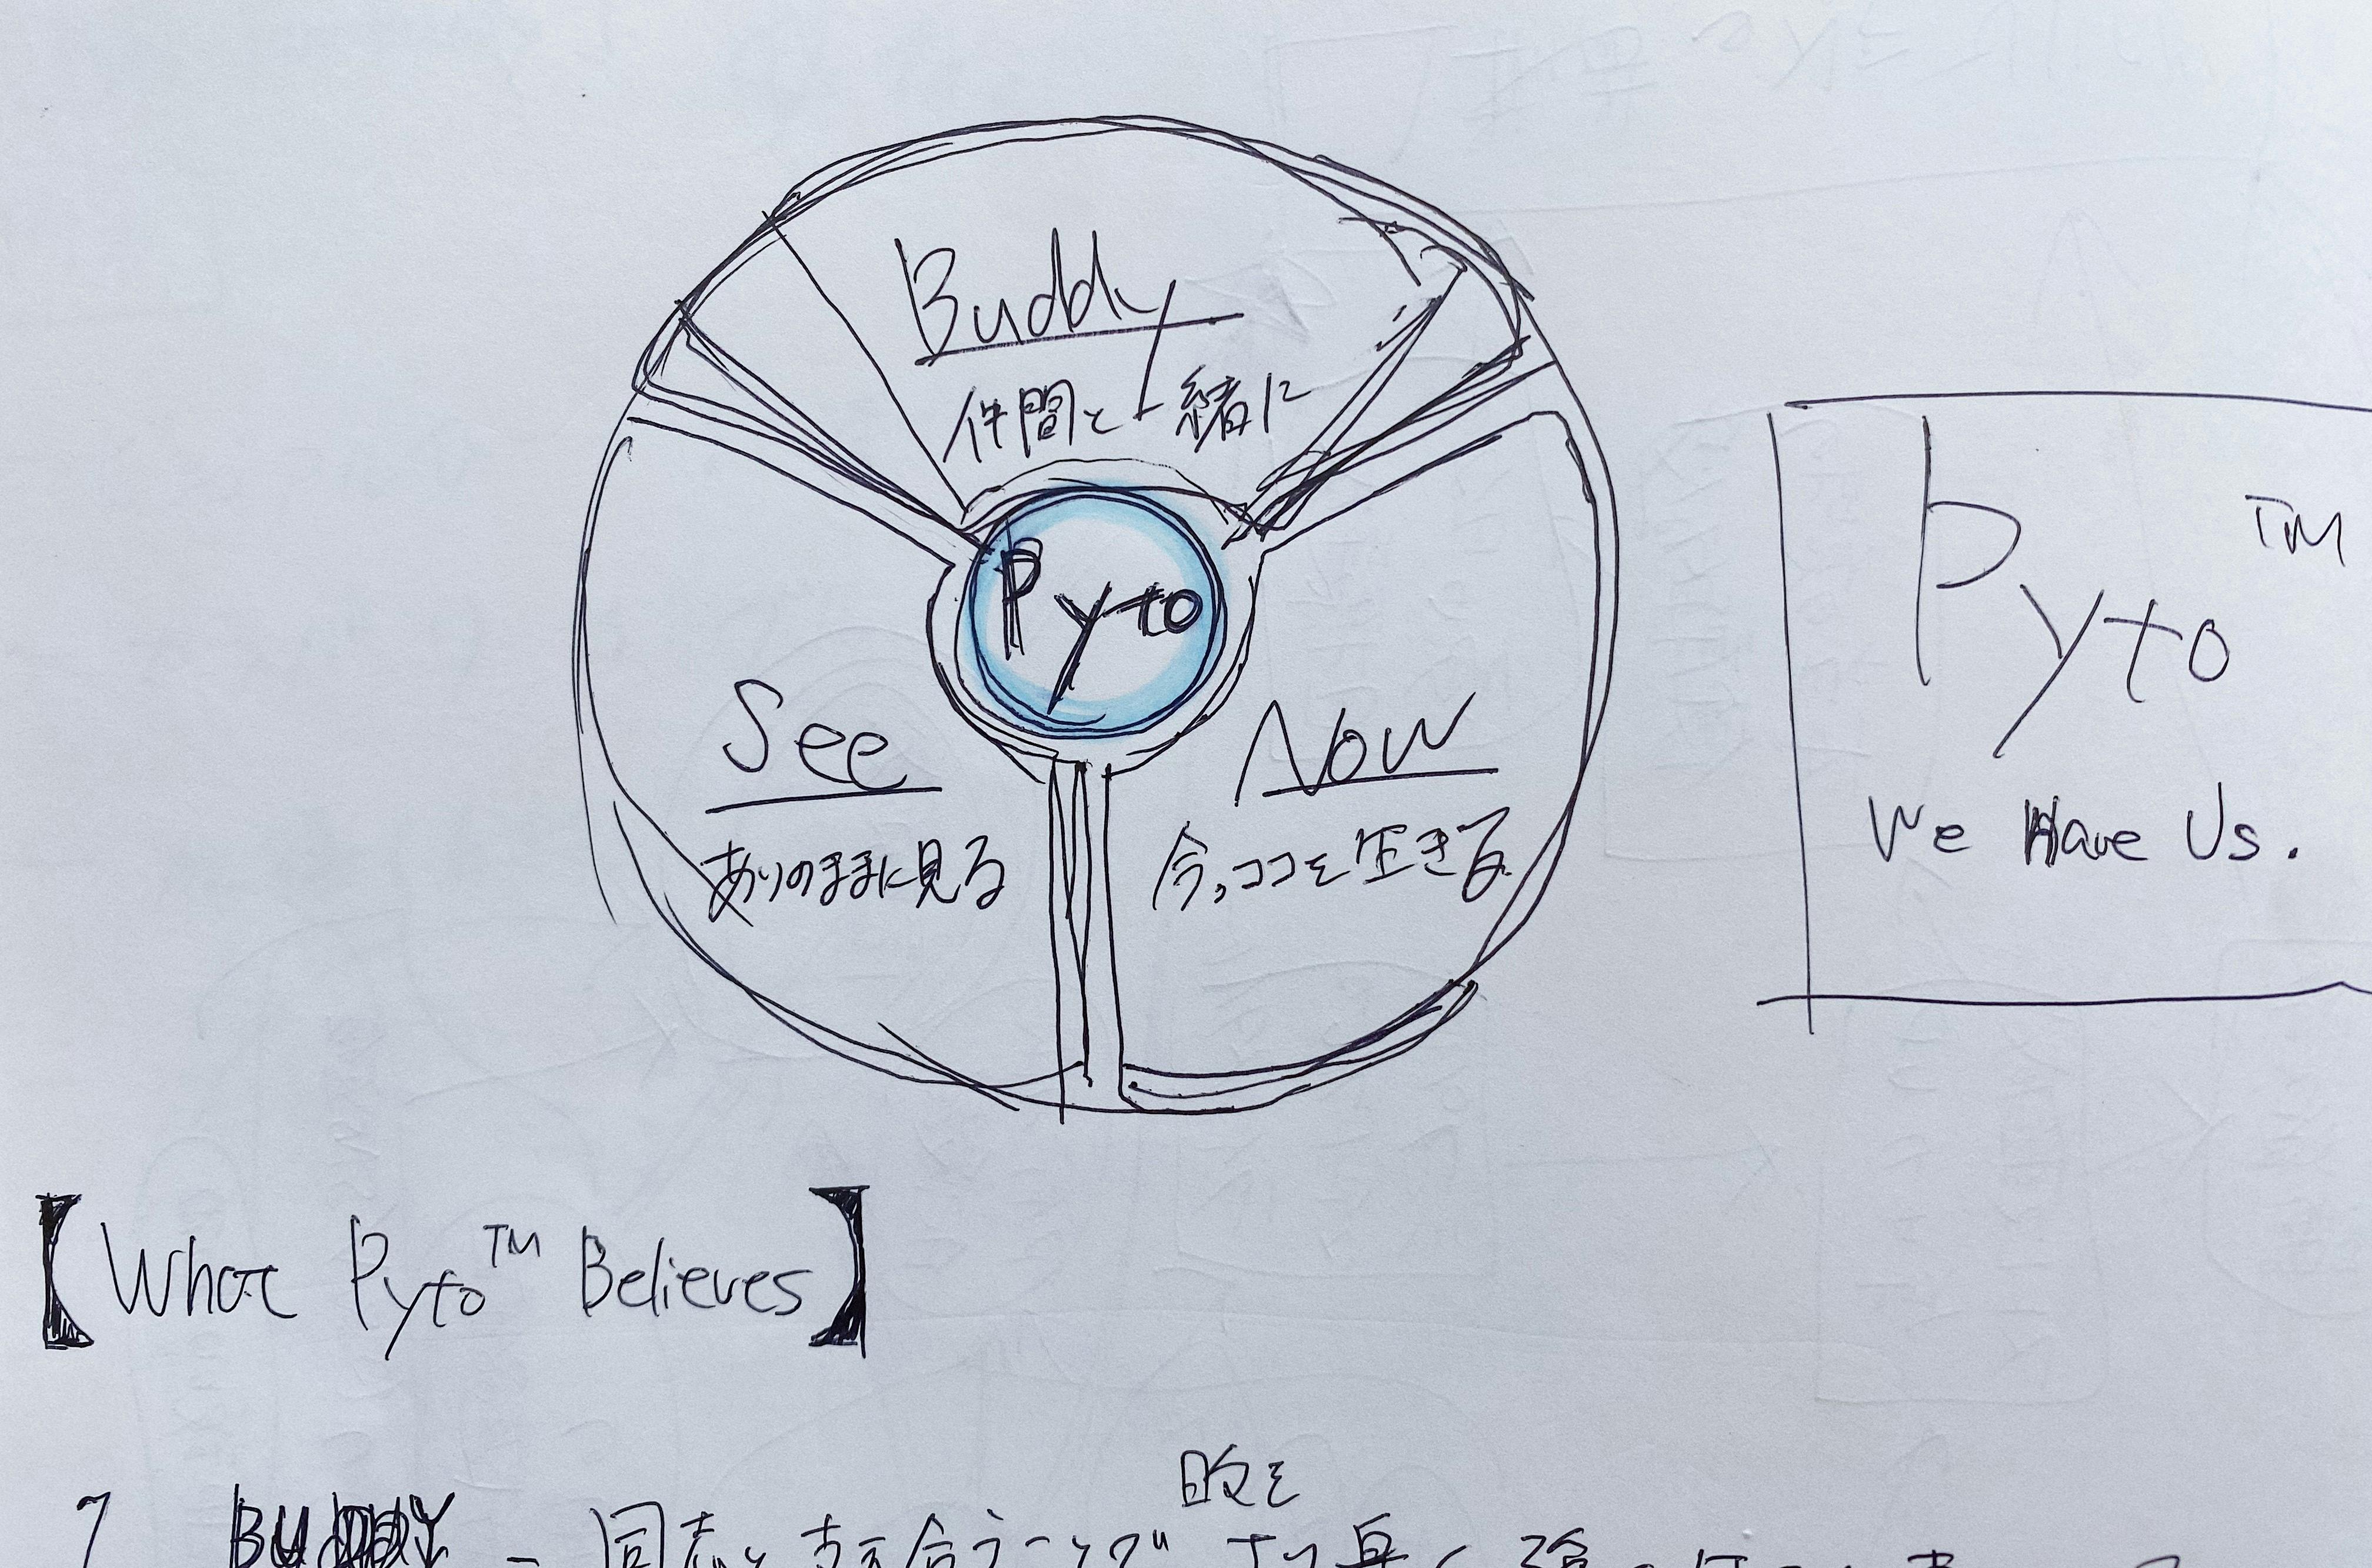 Buddy
仲間と一緒に
Pyto
See
ありのままに見る
Now
今,ココを生きる
Pyto TM
We Have Us.
【What Pyto TM Believes】
BUDDY - 同志と支え合うことで